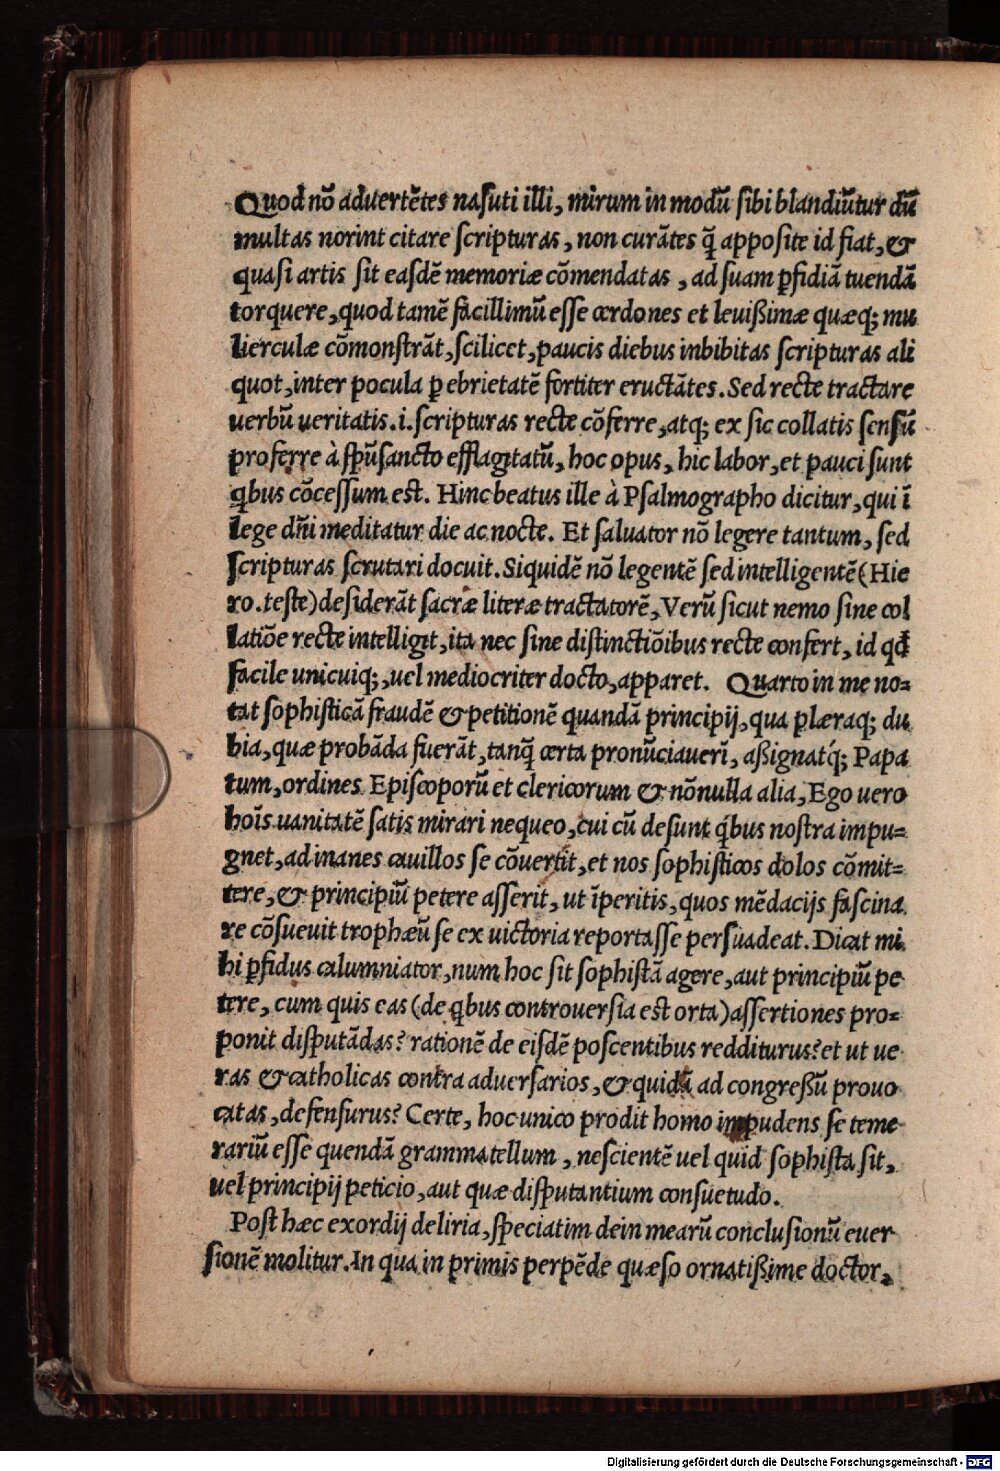 Quod nõ aduertẽtes nasuti illi, mirum in modũ sibi blandiũtur dũ
multas norint citare scripturas, non curãtes q̃ apposite id fiat, &
quasi artis sit easdẽ memoriæ cõmendatas, ad suam ꝑfidiã tuendã
torquere, quod tamẽ facillimũ esse cerdones et leuißimæ quæq; mu
lierculæ cõmonstrãt, scilicet, paucis diebus inbibitas scripturas ali
quot, inter pocula ꝑ ebrietatẽ fortiter eructãtes. Sed recte tractare
uerbũ ueritatis. i. scripturas recte cõferre, atq; ex sic collatis sensũ
proferre à sp̃usancto efflagitatũ, hoc opus, hic labor, et pauci sunt
qͥbus cõcessum est. Hinc beatus ille à Psalmographo dicitur, qui ĩ
lege dñi meditatur die ac nocte. Et saluator nõ legere tantum, sed
scripturas scrutari docuit. Siquidẽ nõ legentẽ sed intelligentẽ (Hie
ro. teste) desiderãt sacræ literæ tractatorẽ, Verũ sicut nemo sine col
latiõe recte intelligit, ita nec sine distinctiõibus recte confert, id qđ
facile unicuiq;, uel mediocriter docto, apparet. Quarto in me no⸗
tat sophisticã fraudẽ & petitionẽ quandã principij, qua plæraq; du
bia, quæ probãda fuerãt, tanq̃ certa pronũciauerĩ, aßignatq́; Papa
tum, ordines Episcoporũ et clericorum & nõnulla alia, Ego uero
hoĩs uanitatẽ satis mirari nequeo, cui cũ desunt qͥbus nostra impu⸗
gnet, ad inanes cauillos se cõuertit, et nos sophisticos dolos cõmit⸗
tere, & principiũ petere asserit, ut ĩperitis, quos mẽdacijs fascina
re cõsueuit trophæũ se ex uictoria reportasse persuadeat. Dicat mi
hi ꝑfidus calumniator, num hoc sit sophistã agere, aut principiũ pe
tere, cum quis eas (de qͥbus controuersia est orta) assertiones pro⸗
ponit disputãdas? rationẽ de eisdẽ poscentibus redditurus? et ut ue
ras & catholicas contra aduersarios, & quidã ad congreßũ prouo
catas, defensurus? Certe, hoc unico prodit homo impudens se teme
rariũ esse quendã grammatellum, nescientẽ uel quid sophista sit,
uel principij peticio, aut quæ disputantium consuetudo.
Post hæc exordij deliria, speciatim dein mearũ conclusionũ euer
sionẽ molitur. In qua in primis perpẽde quæso ornatißime doctor,
Digitalisierung gefördert durch die Deutsche Forschungsgemeinschaft - DFG